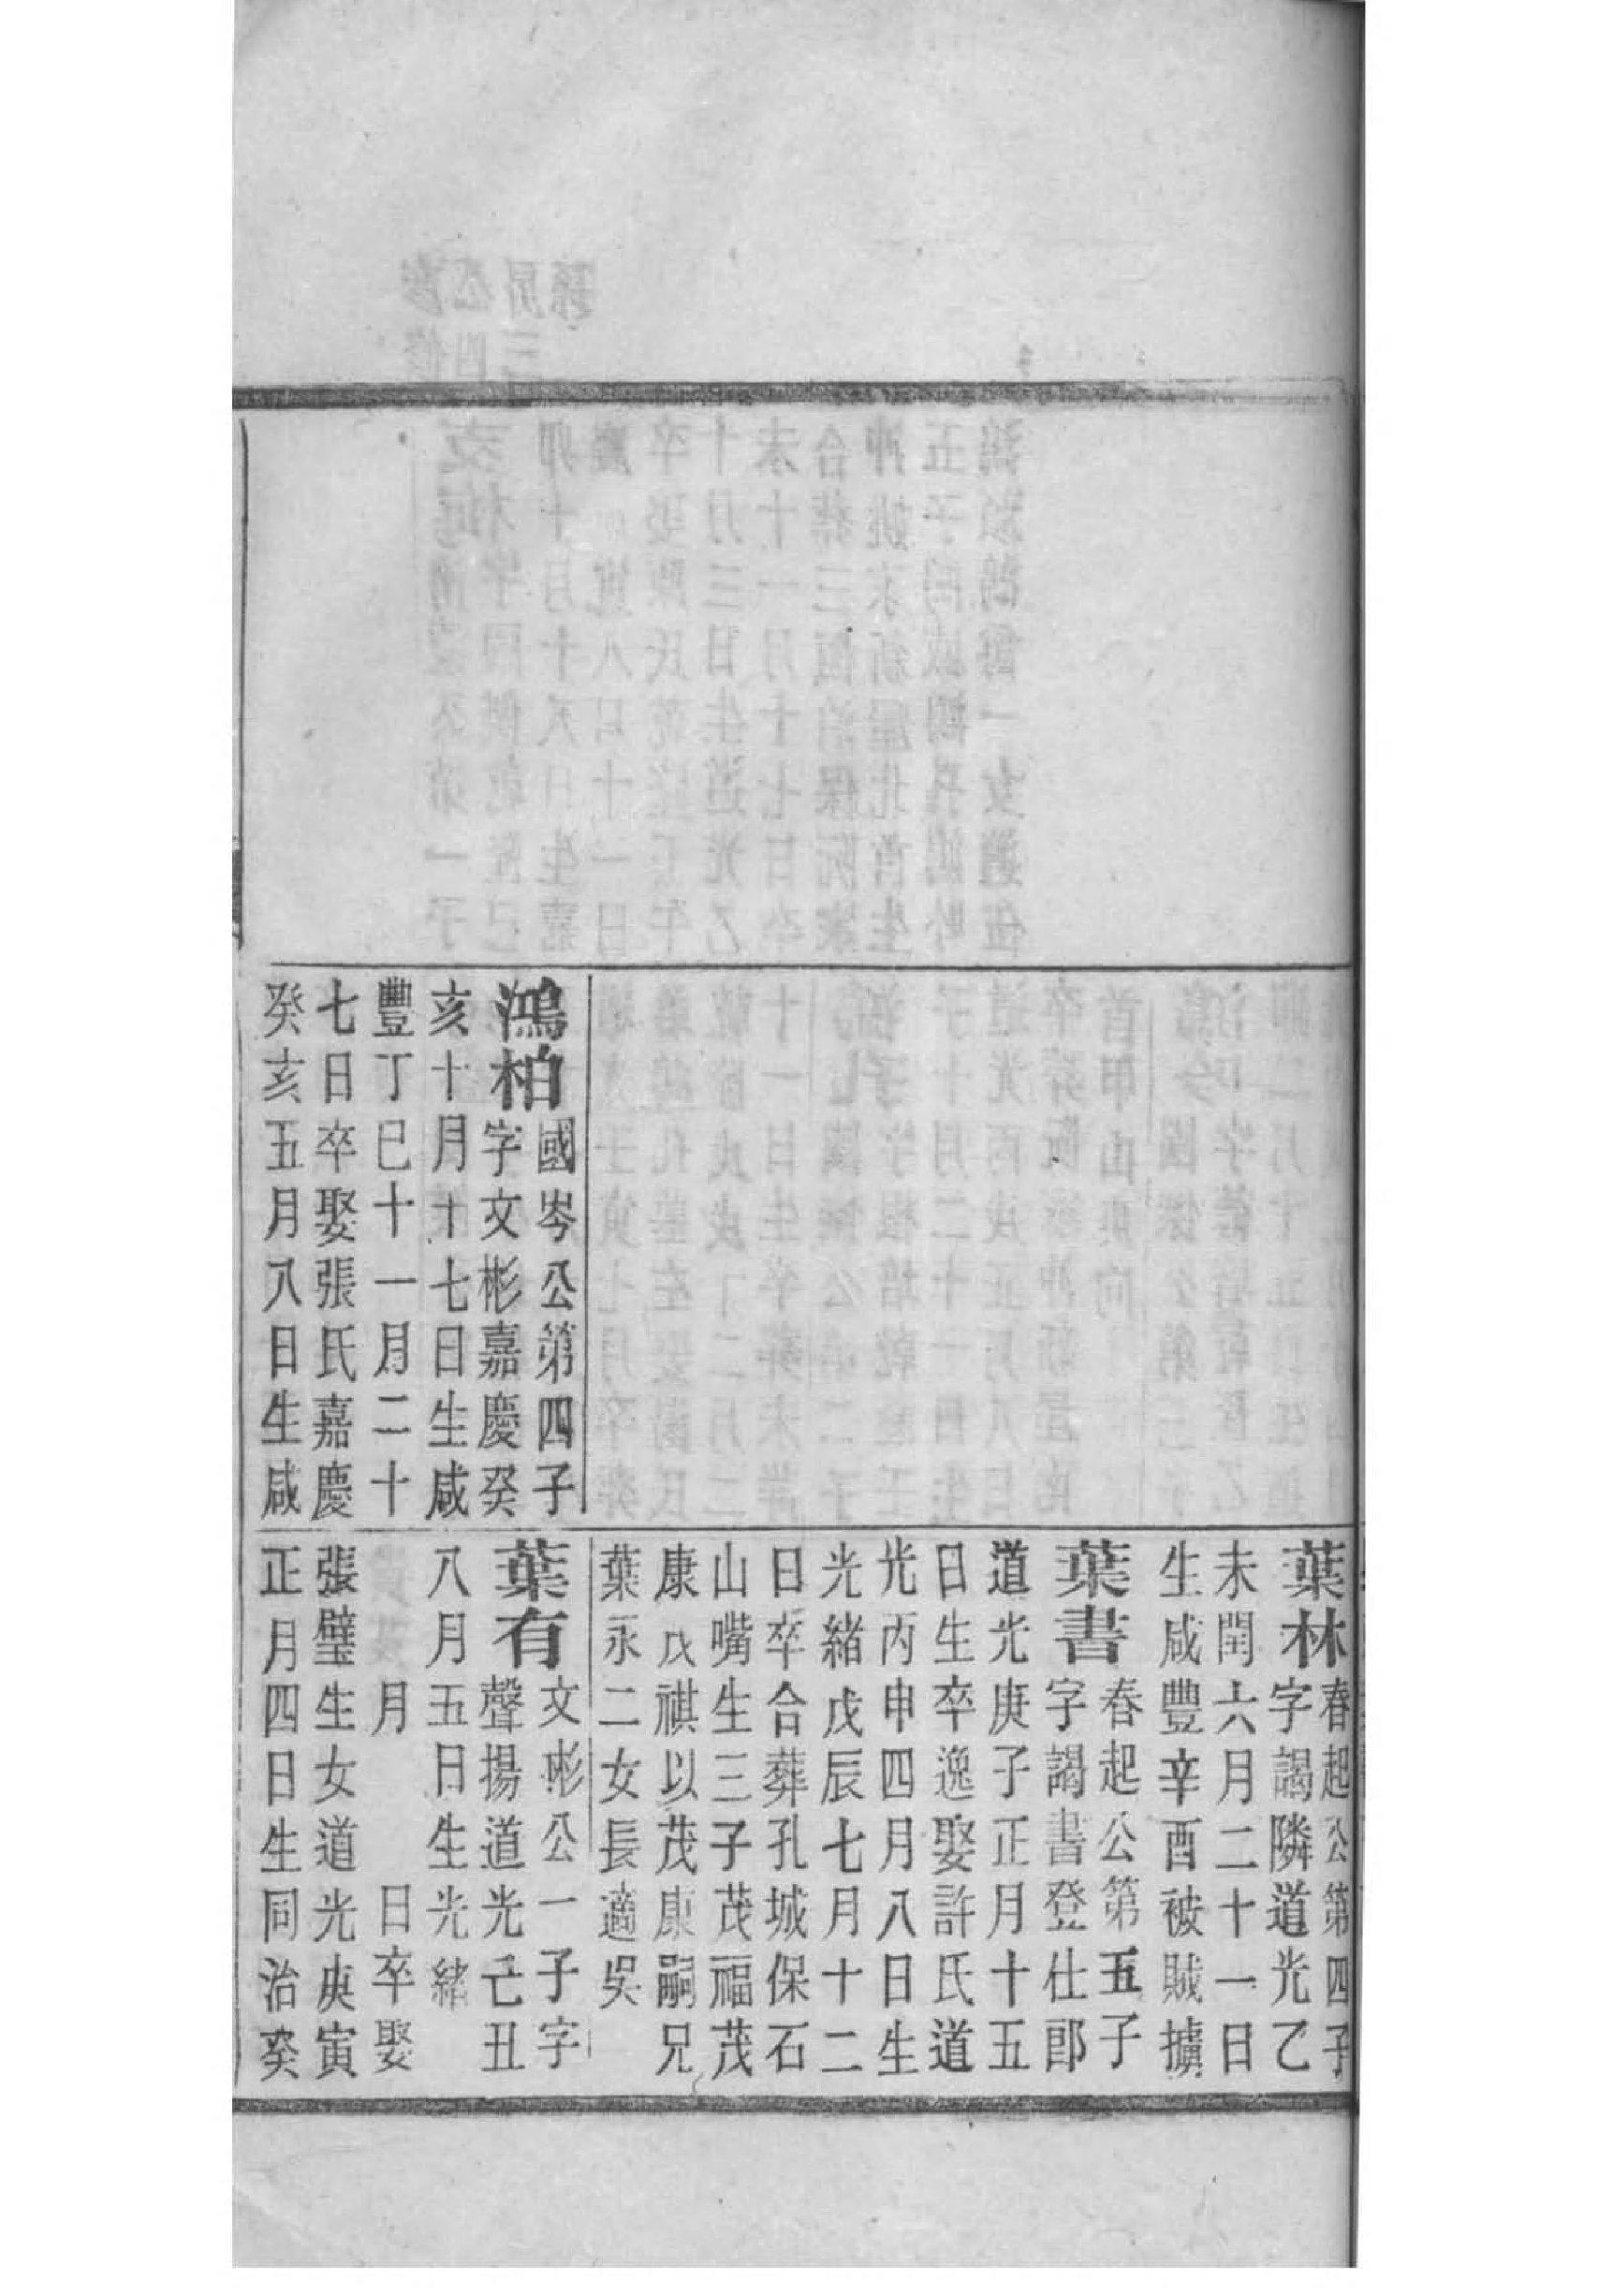 鴻柏
國岑公第四子
字文彬嘉慶癸
亥十月十七日生咸
豐丁巳十一月二十
七日卒娶張氏嘉慶
癸亥五月八日生咸
葉林
春起公第四子
字謁隣道光乙
未閏六月二十一日
生咸豐辛酉被賊擄
葉書
春起公第五子
字謁書登仕郎
道光庚子正月十五
日生卒逸娶許氏道
光丙申四月八日生
光緒戊辰七月十二
日卒合葬孔城保石
山嘴生三子茂福茂
康茂祺以茂康嗣兄
葉永二女長適吳
葉有
文彬公一子字
聲揚道光乙丑
八月五日生光緒
月 日卒娶
張璧生女道光庚寅
正月四日生同治癸